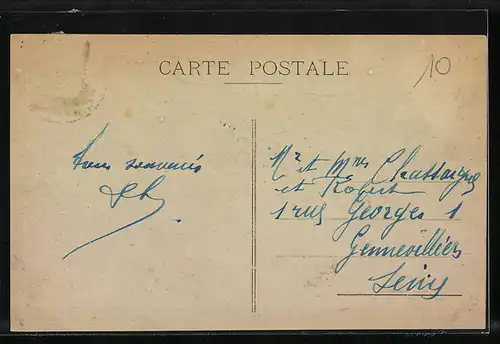 CARTE POSTALE
10
Bons souvenirs
Mr et Mmes Chastaigné
et Robert
1 rue Georges 1
Gennevilliers
Seine